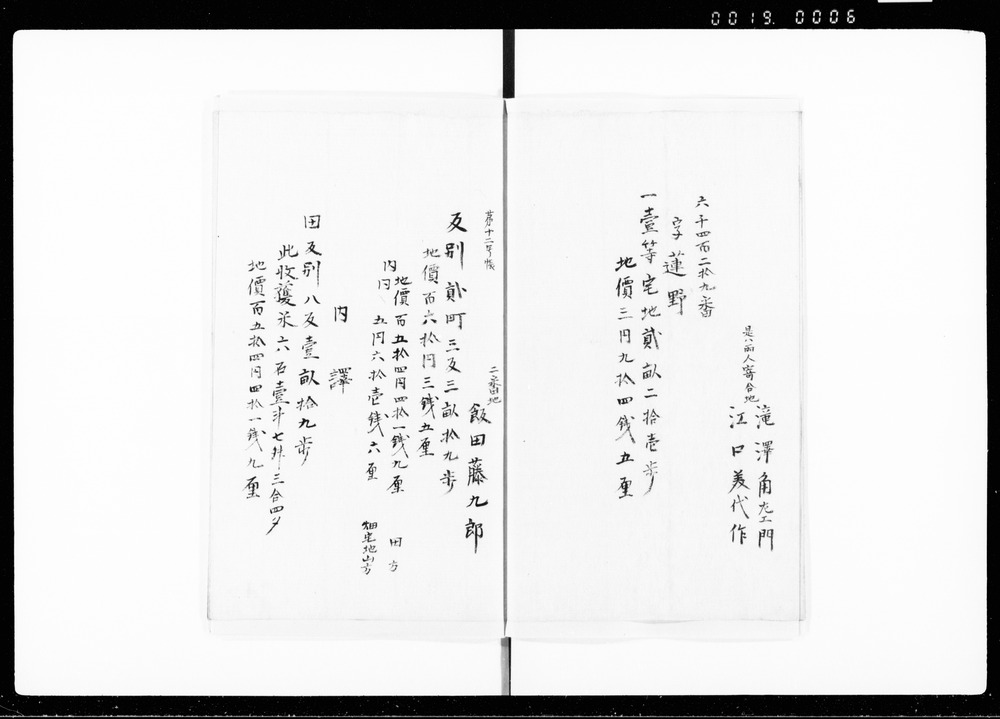 0019. 0006
六千四百二拾九番
字蓮野
一壹等宅地貳畝二拾壱歩
地價三円九拾四銭五厘
是ハ両人寄合地
滝澤角左エ門
江口美代作
第十二号帳
二番地
飯田藤九郎
反別貳町三反三畝拾九歩
地價百六拾円三銭五厘
内
地價百五拾四円四拾一銭九厘 田方
円 五円六拾壱銭六厘 畑宅地山方
内譯
田反別八反壹畝拾九歩
此收穫米六石壹斗七升三合四夕
地價百五拾四円四拾一銭九厘